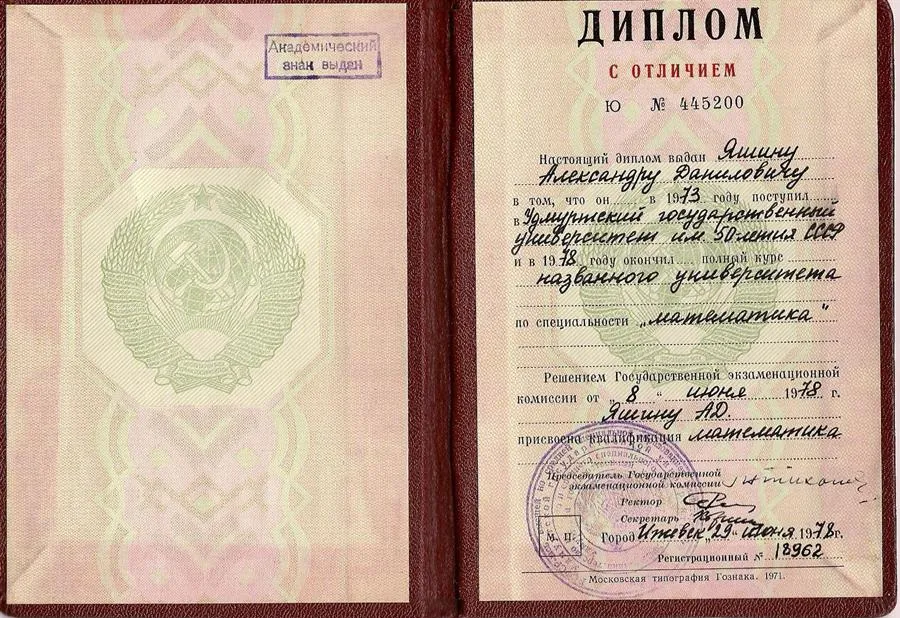 Академический
знак выдан
ДИПЛОМ
С ОТЛИЧИЕМ
Ю № 445200
Настоящий диплом выдан Яшину
Александру Даниловичу
в том, что он в 1973 году поступил
в Удмуртский государственный
университет им. 50-летия СССР
и в 1978 году окончил полный курс
названного университета
по специальности „математика"
Решением Государственной экзаменационной
комиссии от „8" июня 1978 г.
Яшину А.Д.
присвоена квалификация математика
Председатель Государственной
экзаменационной комиссии
Ректор
Секретарь
М. П.
Город Ижевск „29" июня 1978г.
Регистрационный № 18962
Московская типография Гознака. 1971.